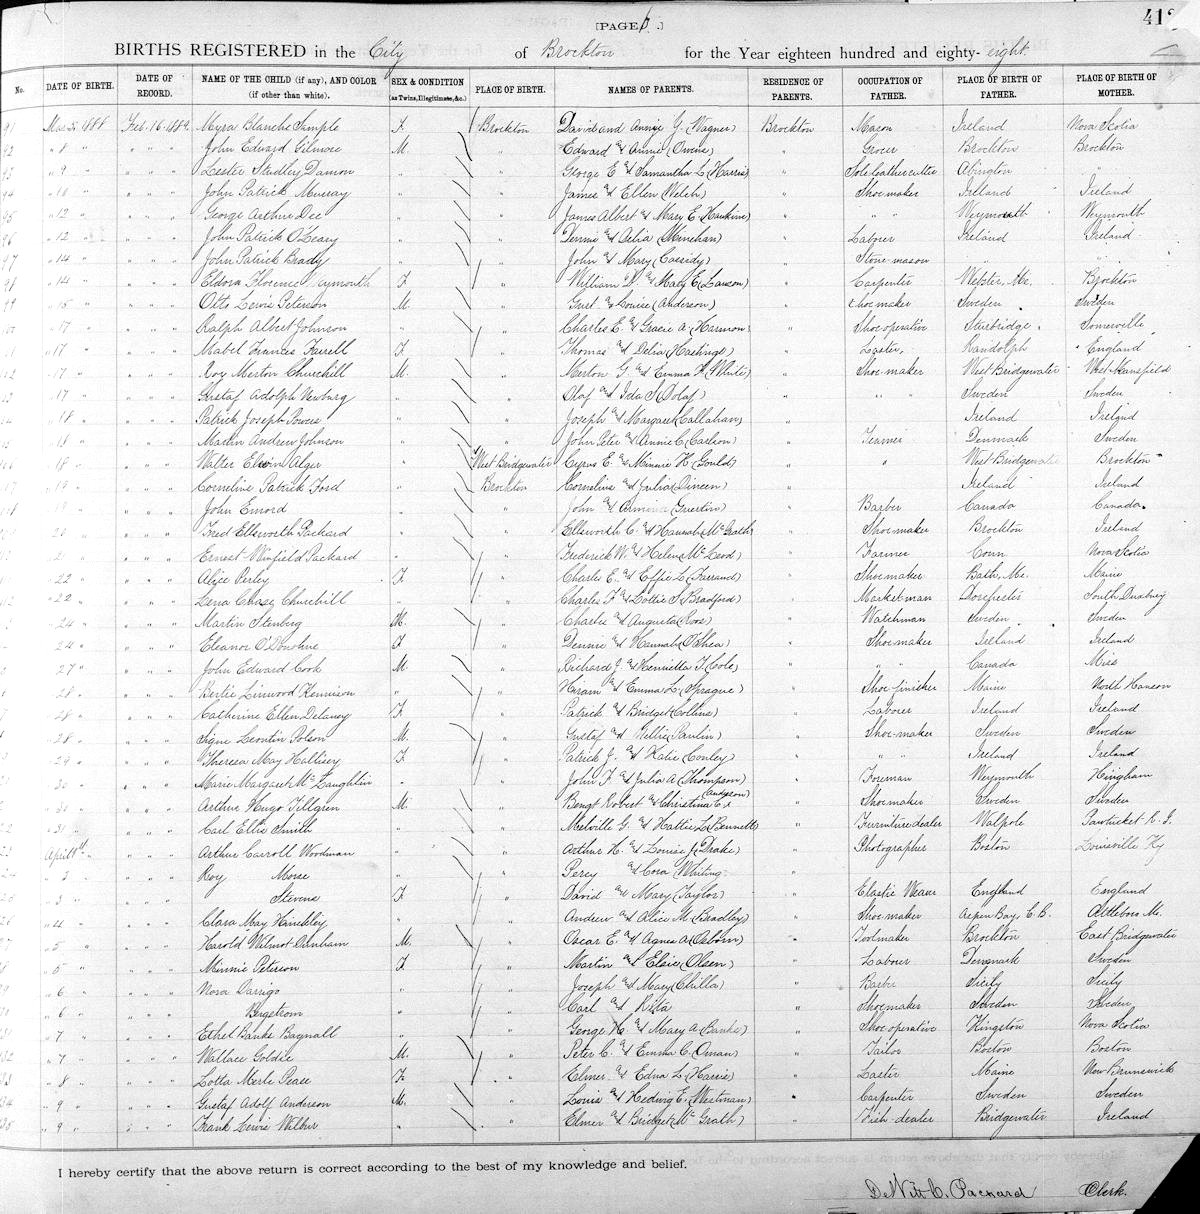 [PAGE 6.]
412
BIRTHS REGISTERED in the City of Brockton for the Year eighteen hundred and eighty- eight
No. DATE OF BIRTH. DATE OF RECORD. NAME OF THE CHILD (if any), AND COLOR (if other than white). SEX & CONDITION (as Twins, Illegitimate, &c.) PLACE OF BIRTH. NAMES OF PARENTS. RESIDENCE OF PARENTS. OCCUPATION OF FATHER. PLACE OF BIRTH OF FATHER. PLACE OF BIRTH OF MOTHER.
Mar 5, 1888 Feb. 16. 1889. Myra Blanche Sample F. Brockton David and Annie Y. (Wagner) Brockton Mason Ireland Nova Scotia
" 8 " " " " John Edward Gilmore M. " Edward " Annie (Owens) " Grocer Brockton Brockton
" 9 " " " " Lester Studley Damon " " George E " Samantha L (Harris) " Sole leather cutter Abington "
" 10 " " " " John Patrick Murray " " James " Ellen (Welch) " Shoemaker Ireland Ireland
" 12 " " " " George Arthur Dee " " James Albert " Mary E. (Hawkins) " " " Weymouth Weymouth
" 12 " " " " John Patrick O'Leary " " Dennis " Delia (Minehan) " Laborer Ireland Ireland
" 14 " " " " John Patrick Brady " " John " Mary (Cassidy) " Stone mason " "
" 14 " " " " Eldora Florence Weymouth F. " William D. " Mary E (Lawson) " Carpenter Webster, Me. Brockton
" 15 " " " " Otto Lewis Peterson M. " Gust. " Louise (Anderson) " Shoemaker Sweden Sweden
" 17 " " " " Ralph Albert Johnson " " Charles E. " Gracie A. (Harmon) " Shoe operative Sturbridge. Somerville
" 17 " " " " Mabel Frances Farrell F. " Thomas " Delia (Hastings) " Laster, Randolph England
" 17 " " " " Roy Merton Churchill M. " Merton G. " Emma F. (White) " Shoe maker West Bridgewater West Mansfield
" 17 " " " " Gustaf Adolph Newburg " " Olaf " Ida S (Dolaf) " " " Sweden Sweden
" 18 " " " " Patrick Joseph Powers " " Joseph " Margaret (Callahan) " Ireland Ireland
" 18 " " " " Martin Andrew Johnson " " John Peter " Annie C. (Carlson) " Teamer Denmark Sweden
" 18 " " " " Walter Elwin Alger " West Bridgewater Cyrus E. " Minnie H. (Gould) " " West Bridgewater Brockton
" 19 " " " " Cornelius Patrick Ford " Brockton Cornelius " Julia (Dineen) " Ireland Ireland
" 19 " " " " John Emord " " John " Armina (Guertin) " Barber Canada Canada.
" 20 " " " " Fred Ellsworth Packard " " Ellsworth C. " Hannah (McGrath) " Shoemaker Brockton Ireland
" 21 " " " " Ernest Winfield Packard " " Frederick W. " Helen (McLeod) " Farmer Conn Nova Scotia
" 22 " " " " Alice Perley F. " Charles E. " Effie L. (Farrand) " Shoemaker Bath, Me. Maine
" 22 " " " " Lena Churchill " " Charles F " Lottie S. (Bradford) " Marketman Dorchester South Duxbury
" 24 " " " " Martin Stenberg M. " Charlie " Augusta (Roos) " Watchman Sweden Sweden
" 24 " " " " Eleanor O'Donohue F " Dennis " Hannah (O'Shea) " Shoemaker Ireland Ireland
" 27 " " " " John Edward Cook M. " Richard J. " Henrietta T. (Cole) " " " Canada Miss
" 28 " " " " Bertie Linwood Kennison " " Hiram " Emma L. (Sprague) " Shoe finisher Maine North Hanson
" 28 " " " " Catherine Ellen Delaney F. " Patrick " Bridget (Collins) " Laborer Ireland Ireland
" 28 " " " " Signe Leontin Polson M. " Gustaf " Nellie (Paulin) " Shoe-maker Sweden Sweden
" 29 " " " " Theresa May Hallisey F. " Patrick J. " Katie (Conley) " " " Ireland Ireland
" 30 " " " " Marie Margaret McLaughlin " John F. " Julia A. (Thompson) " Foreman Weymouth Hingham
" 31 " " " " Arthur Hugo Fillgren M. " Bengt Robert " Christina C. (Anderson) " Shoemaker Sweden Sweden
" 31 " " " " Carl Ellis Smith " " Melville G. " Hattie L. (Bennett) " Furniture dealer Walpole Pawtucket R. I.
April 1st " " " Arthur Carroll Woodman " " Arthur H. " Louise J. (Drake) " Photographer Boston Louisville Ky
" 3 " " " " Roy Morse " Percy " Cora (Whiting
" 3 " " " " Stevens F. " David " Mary (Taylor) " Elastic Weaver England England
" 4 " " " Clara May Hinckley " " Andrew " Alice M. (Bradley) " Shoemaker Aspen Bay, C. B. Attleboro
" 5 " " " " Harold Wilmot Dunham M. " Oscar E. " Agnes A. (Osborn) " Toolmaker Brockton East Bridgewater
" 5 " " " " Minnie Peterson F. " Martin " Elsie (Olsen) " Laborer Denmark Sweden
" 6 " " " " Nora Darrigo " " Joseph " Mary (Chilla) " Barber Sicily Sicily
" 6 " " " " Bergstrom " " Carl " Kitta " Shoemaker Sweden Sweden
" 7 " " " " Ethel Banks Bagnall " " George H. " Mary A. (Banks) " Shoe operative Kingston Nova Scotia
" 7 " " " " Wallace Goldie M. " Peter C. " Emma C. (Oman) " Tailor Boston Boston
" 8 " " " " Lotta Merle Pease F. " Elmer " Edna L. (Harris) " Laster Maine New Brunswick
" 9 " " " " Gustaf Adolf Anderson M. " Louis " Hedwig C. (Westman) " Carpenter Sweden Sweden
" 9 " " " " Frank Lewis Wilbur " " Elmer " Bridget (McGrath) " Fish-dealer Bridgewater Ireland
I hereby certify that the above return is correct according to the best of my knowledge and belief.
DeWitt C. Packard Clerk.